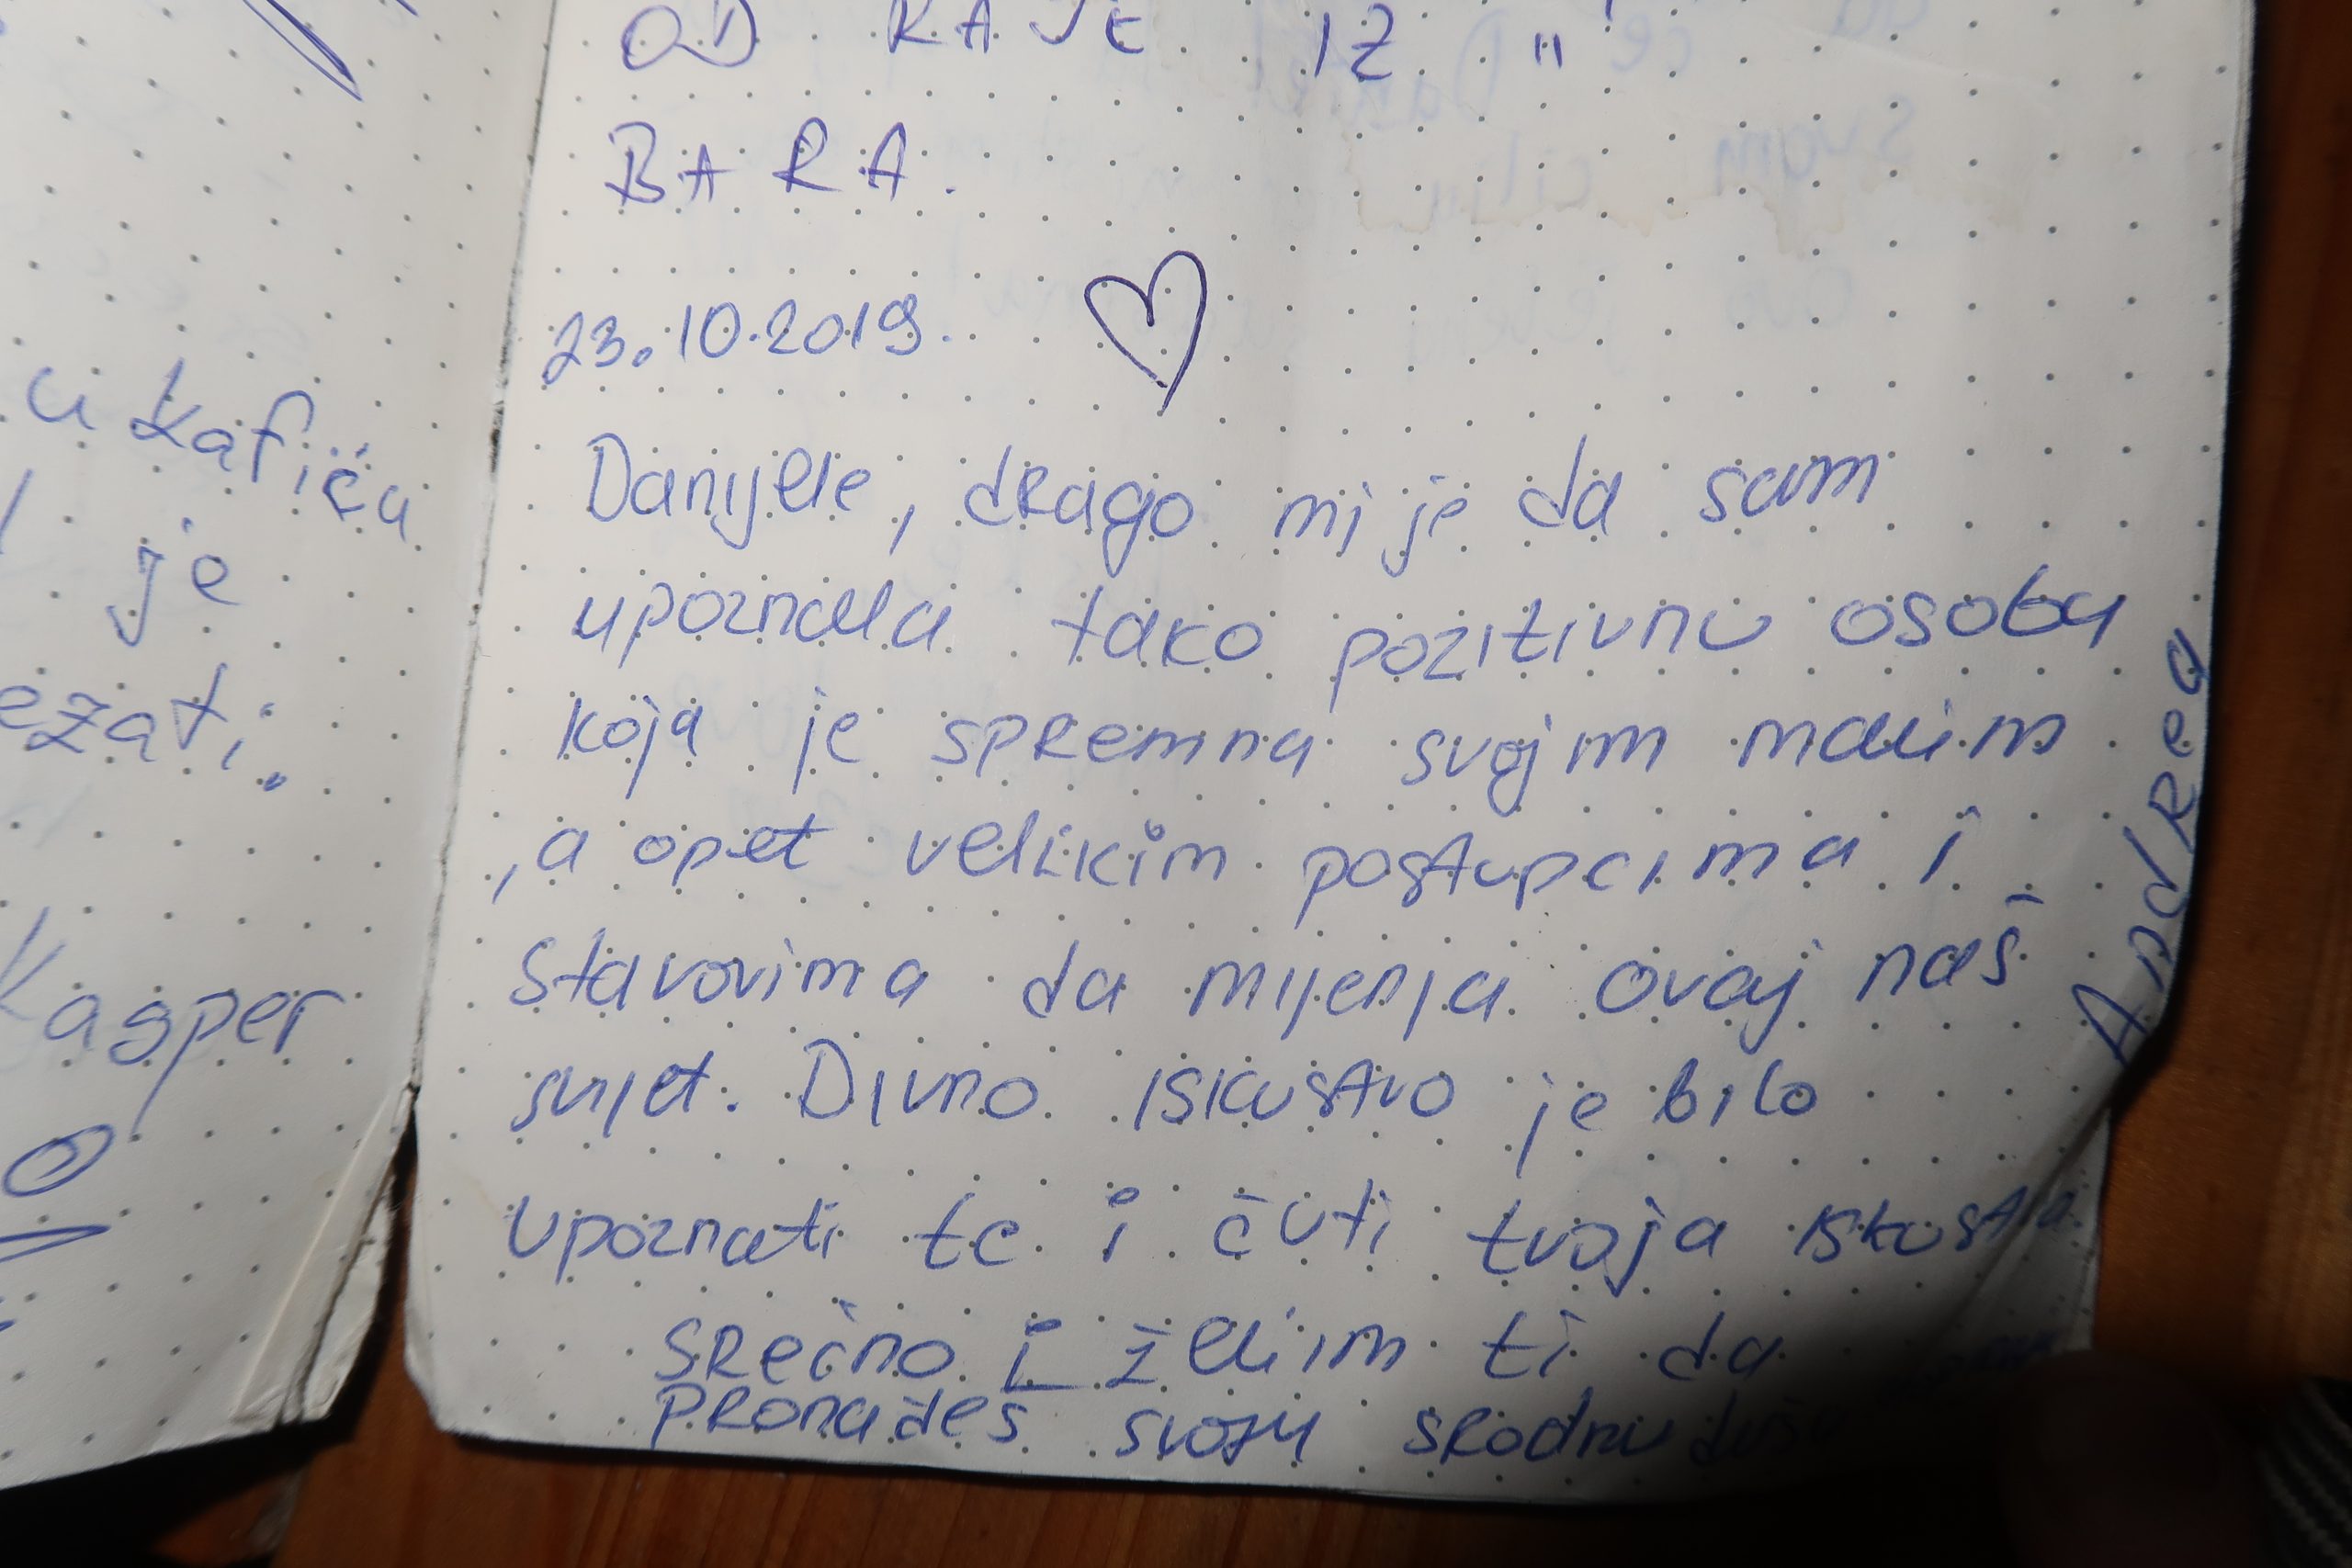 u kafiću
je
ezati.
Kasper
OD RAJE IZ "
BARA.
23.10.2019.
Danijele, drago mi je da sam
upoznala tako pozitivnu osobu
koja je spremna svojim malim
, a opet velikim postupcima i
stavovima da mijenja ovaj naš
svijet. Divno iskustvo je bilo
upoznati te i čuti tvoja
srećno i želim ti da
pronađeš svoju srodnu dušu
Andrea